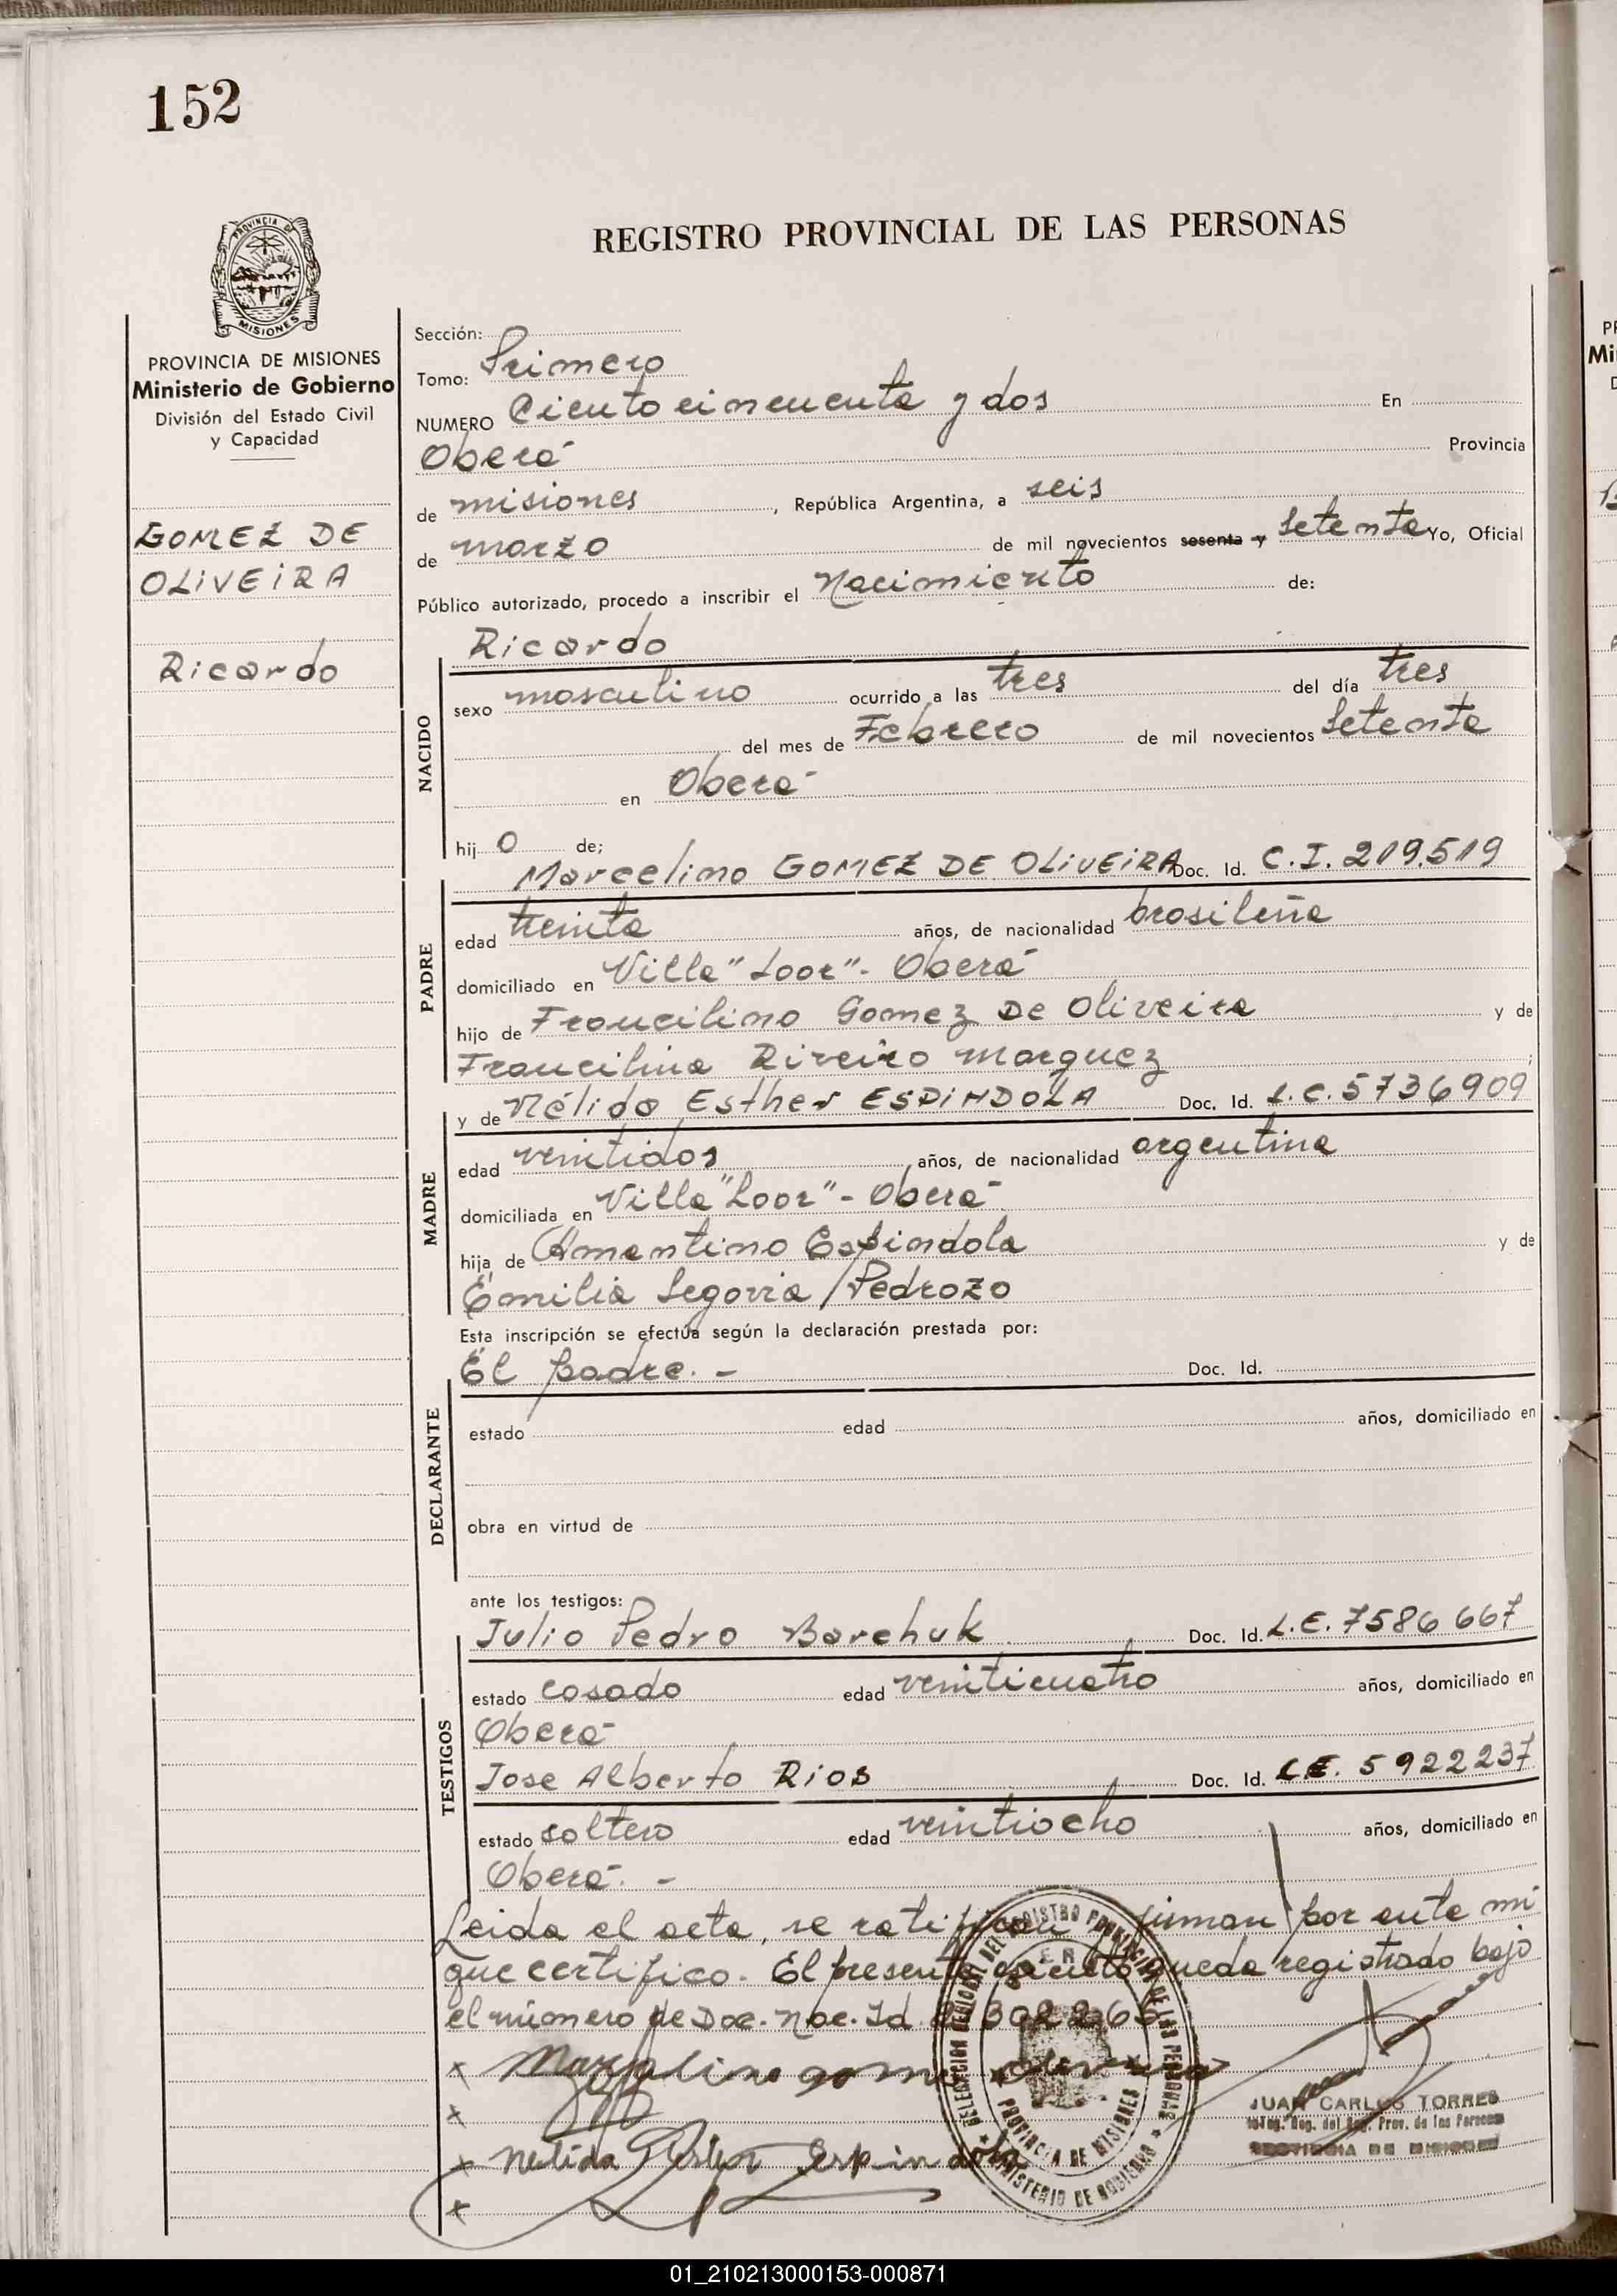 152
REGISTRO PROVINCIAL DE LAS PERSONAS
PROVINCIA DE
MISIONES
PROVINCIA DE MISIONES
Ministerio de Gobierno
División del Estado Civil
y Capacidad
GOMEZ DE
OLIVEIRA
Ricardo
Sección:
Tomo: Primero
NUMERO Ciento cincuenta y dos En
Oberá Provincia
de misiones, República Argentina, a seis
de marzo de mil novecientos sesenta y setenta Yo, Oficial
Público autorizado, procedo a inscribir el Nacimiento de:
Ricardo
NACIDO
sexo masculino ocurrido a las tres del día tres
del mes de Febrero de mil novecientos setenta
en Oberá
hijo de;
Marcelino GOMEZ DE OLIVEIRA Doc. Id. C.I. 219.519
PADRE
edad treinta años, de nacionalidad brasileña
domiciliado en Villa "Loor" - Oberá
hijo de Francilino Gomez De Oliveira y de
Francilina Riveiro Marquez
y de Nélida Esther ESPINDOLA Doc. Id. L.C. 5736909
MADRE
edad veintidos años, de nacionalidad argentina
domiciliada en Villa "Loor" - Oberá
hija de Amantino Espindola y de
Emilia Segovia / Pedrozo
Esta inscripción se efectúa según la declaración prestada por:
El padre. - Doc. Id.
DECLARANTE
estado edad años, domiciliado en
obra en virtud de
ante los testigos:
Julio Pedro Barchuk Doc. Id. L.E. 7586667
TESTIGOS
estado casado edad veinticuatro años, domiciliado en
Oberá
Jose Alberto Rios Doc. Id. L.E. 5922237
estado soltero edad veintiocho años, domiciliado en
Oberá. -
Leida el acta, se ratifican firman por ante mi
que certifico. El presente queda registrado bajo
el número de Doc. Nac. Id.
x Marcelino gome
x
x Nelida Ester Espindola
x
DELEGACION DEL REGISTRO PROVINCIAL DE LAS PERSONAS
PROVINCIA DE MISIONES
MINISTERIO DE GOBIERNO
JUAN CARLOS TORRES
Prov. de las Personas
PROVINCIA DE MISIONES
01_210213000153-000871